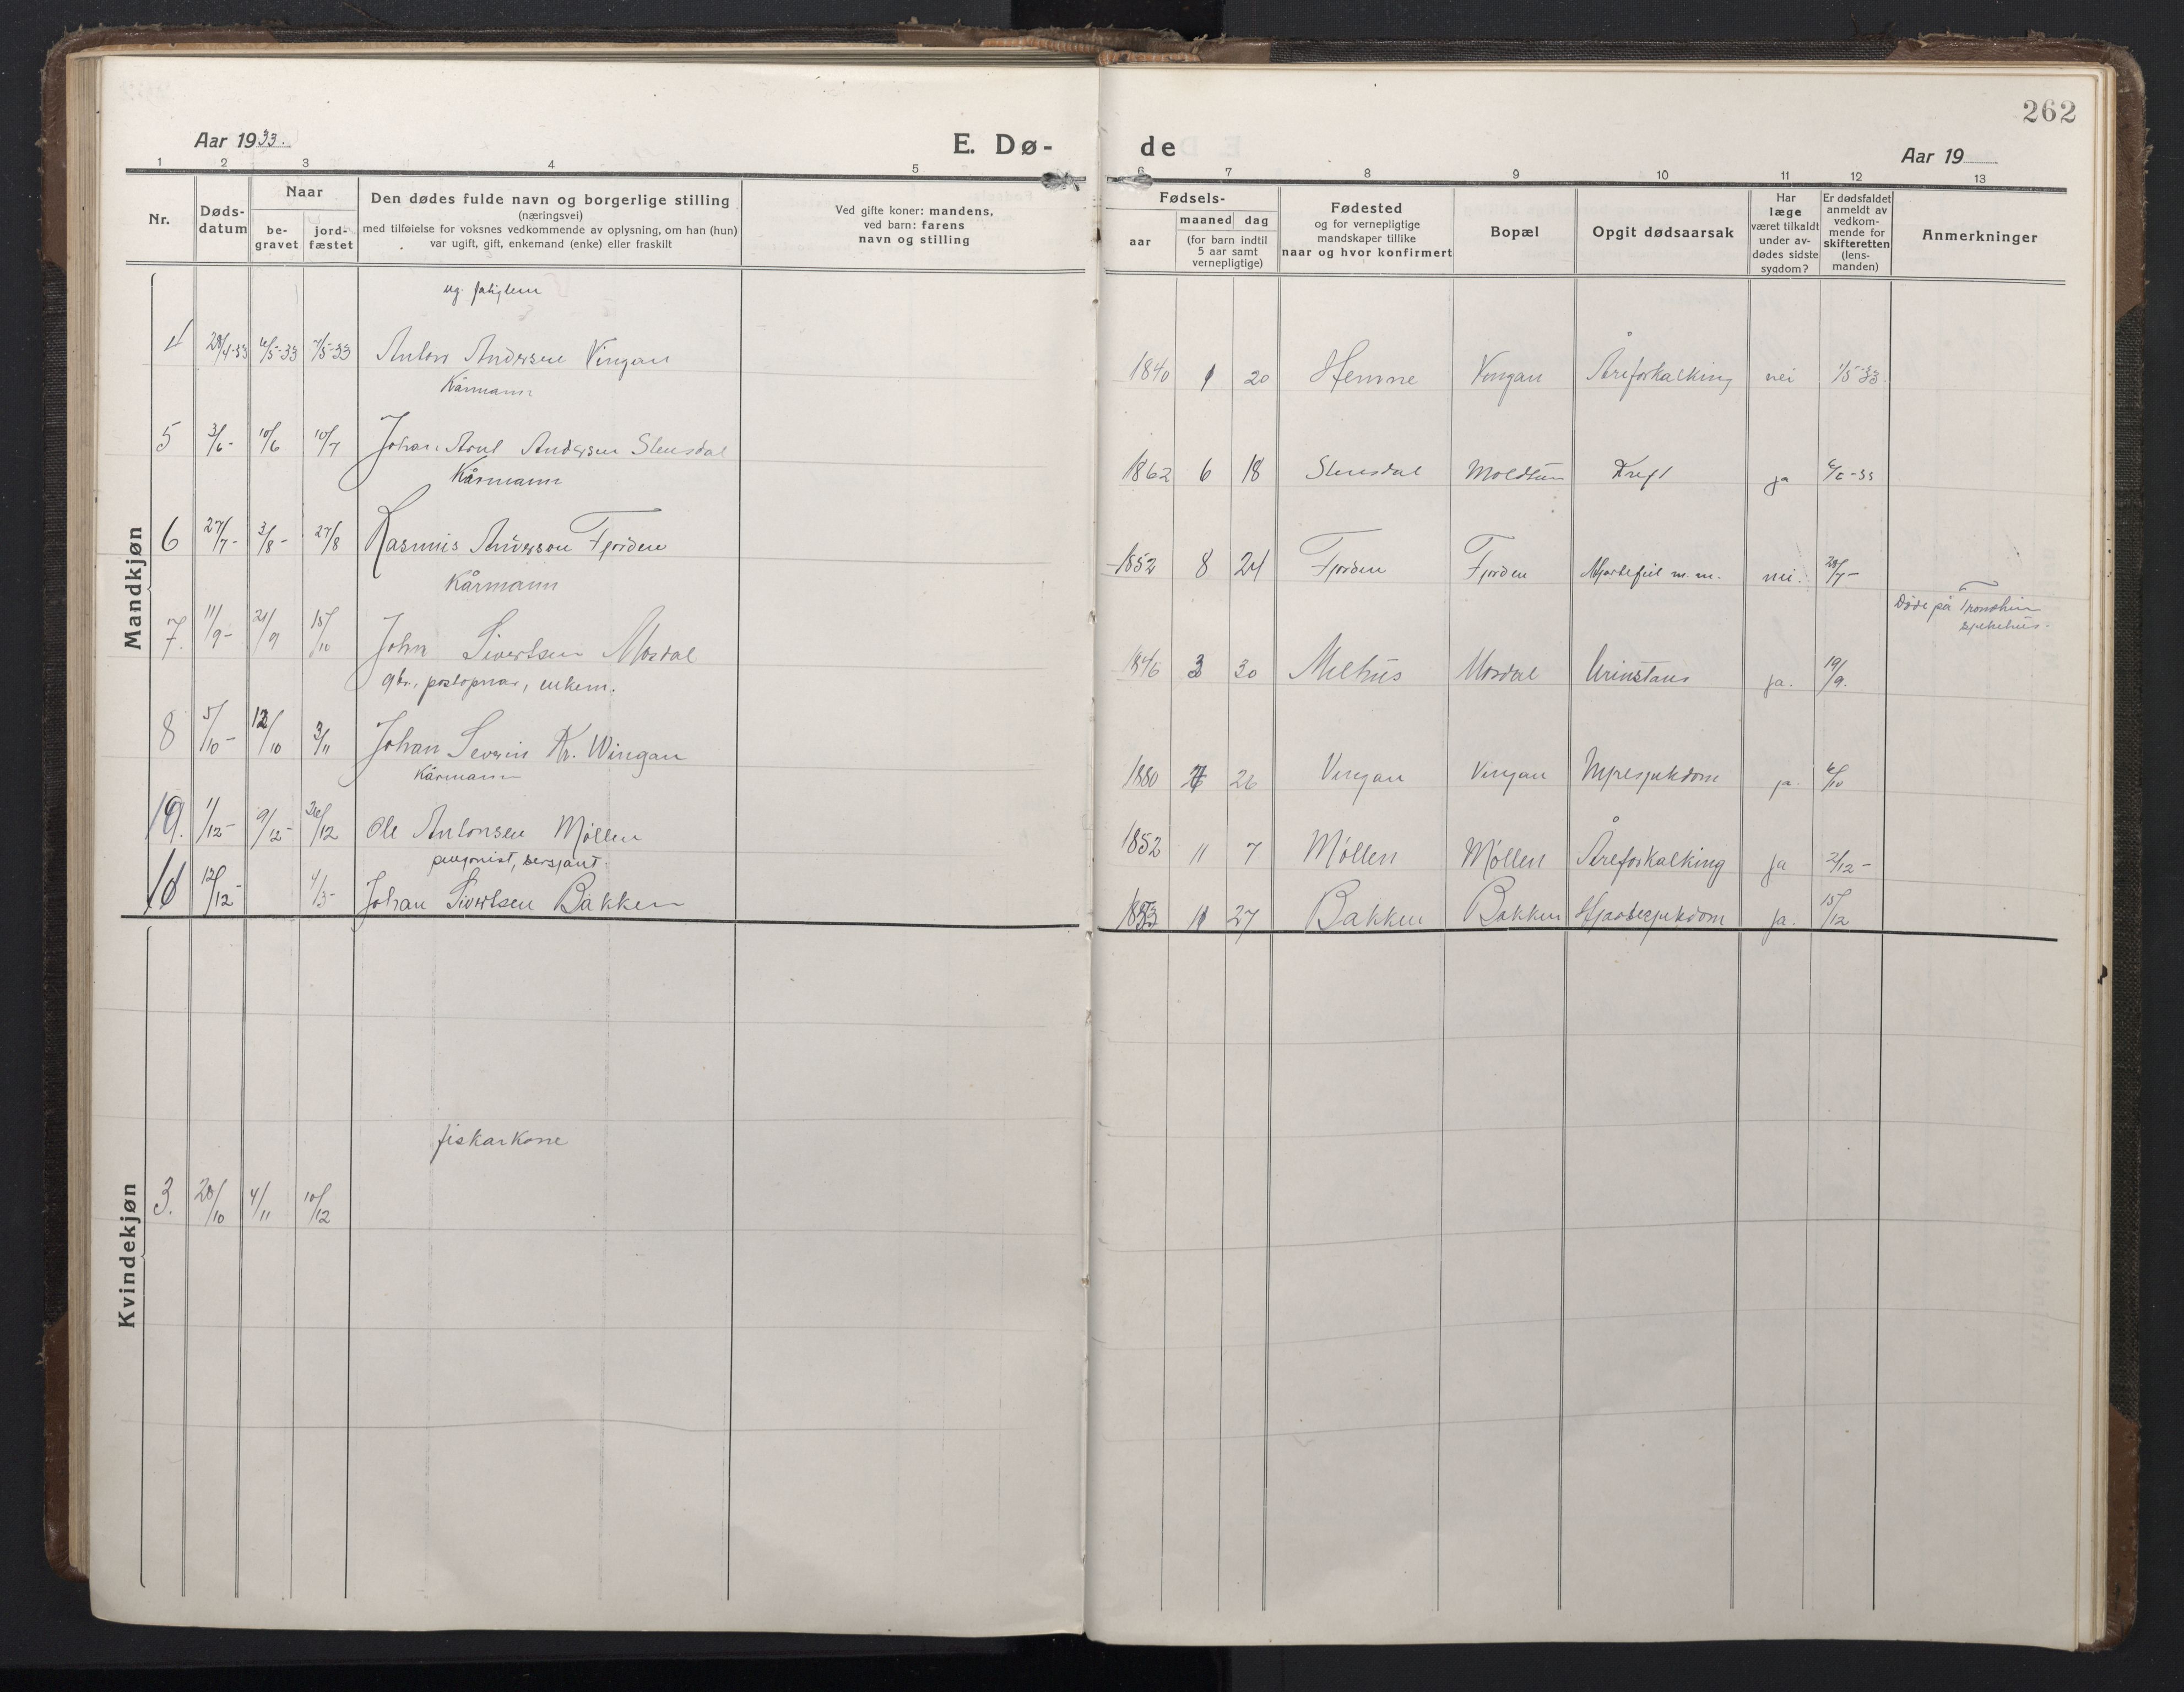 262
Aar 1933.
E. Dø-
de
Aar 19
1 2 3 4 5 6 7 8 9 10 11 12 13
Nr.
Døds-
datum
Naar
be-
gravet
jord-
fæstet
Den dødes fulde navn og borgerlige stilling
(næringsvei)
med tilføielse for voksnes vedkommende av oplysning, om han (hun)
var ugift, gift, enkemand (enke) eller fraskilt
Ved gifte koner: mandens,
ved barn: farens
navn og stilling
Fødsels-
aar
maaned dag
(for barn indtil
5 aar samt
vernepligtige)
Fødested
og for vernepligtige
mandskaper tillike
naar og hvor konfirmert
Bopæl
Opgit dødsaarsak
Har
læge
været tilkaldt
under av-
dødes sidste
sygdom?
Er dødsfaldet
anmeldt av
vedkom-
mende for
skifteretten
(lens-
manden)
Anmerkninger
Mandkjøn
ug.
4 28/4-33 6/5-33 7/5-33 Anton Andersen Vingan 1840 1 20 Hemne Vingan Åreforkalking nei 1/5-33
Kårmann
5 3/6- 10/6 10/7 Johan Arnt Andersen Stensdal 1862 6 18 Stensdal Moldtun Kreft ja 6/6-33
Kårmann
6 27/7- 3/8- 27/8 Rasmus Anderson Fjorden 1852 8 24 Fjorden Fjorden Hjartefeil m.m. nei. 28/7-
Kårmann
7. 11/9- 21/9 15/10 John Sivertsen Mosdal 1846 3 30 Melhus Mosdal Urinstans ja. 19/9. Døde på Trondhim sjukehus.
gbr., postopnar, enkem.
8 5/10- 12/10 3/11 Johan Severin Kr. Wingan 1880 7 26 Vingan Vingan Nyresjukdom ja. 6/10
Kårmann
9. 1/12- 9/12- 26/12 Ole Antonsen Møllen 1852 11 7 Møllen Møllen Åreforkalking ja 2/12-
pensjonist, sersjant.
10 12/12- 4/3- Johan Sivertsen Bakken 1853 11 27 Bakken Bakken Hjartesjukdom ja. 15/12
Kvindekjøn
fiskarkone
3. 28/10 4/11 10/12